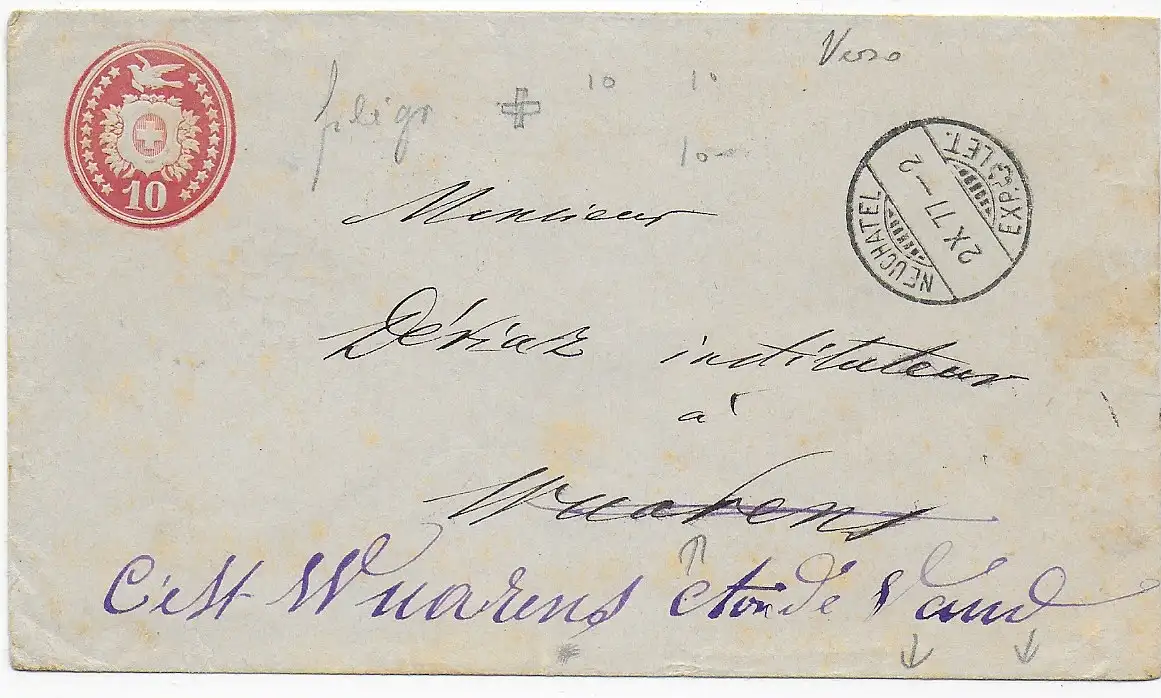 Verso
filigr 10 1°
10
10
Monsieur
Dériaz instituteur
à
Wuarens
C'est Wuarens cton de Vaud
NEUCHATEL
2 X 77 – 2
EXP. LET.